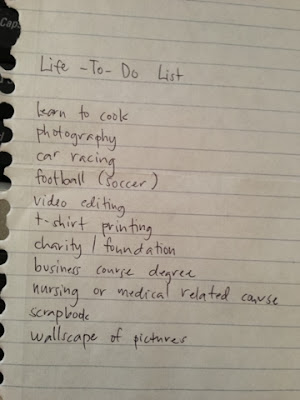 Caps
Life -To- Do List
learn to cook
photography
car racing
football (soccer)
video editing
t-shirt printing
charity / foundation
business course degree
nursing or medical related course
scrapbook
wallscape of pictures